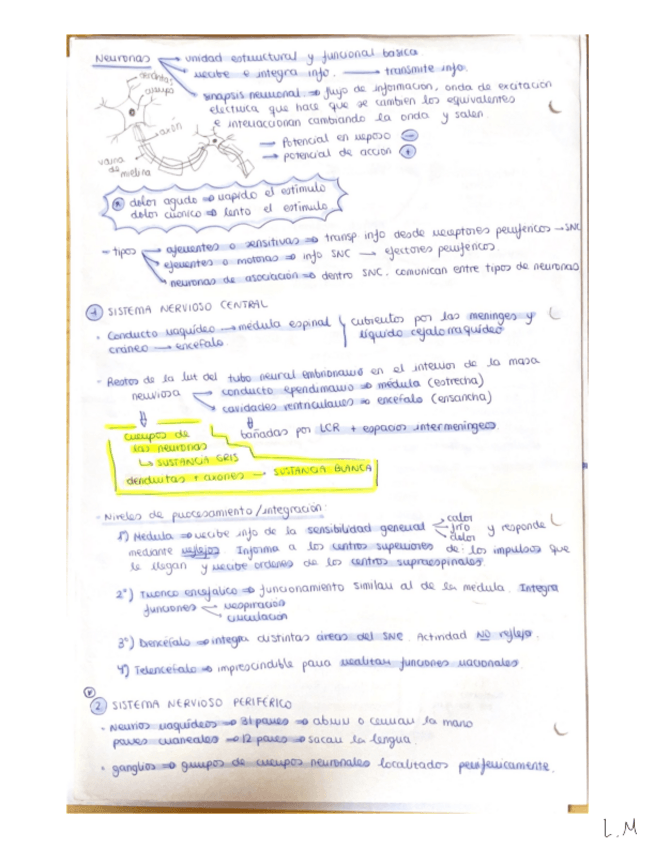 Neuronas → unidad estructural y funcional basica
→ recibe e integra info. → transmite info.
→ sinapsis neuronal ⇒ flujo de información, onda de excitación
electrica que hace que se cambien los equivalentes
e interaccionan cambiando la onda y salen.
dendritas
cuerpo
axón
vaina de mielina
→ Potencial en reposo ⊖
→ potencial de acción ⊕
* dolor agudo ⇒ rapido el estimulo
dolor crónico ⇒ lento el estimulo
- tipos → aferentes o sensitivas ⇒ transp info desde receptores perifericos → SNC
→ eferentes o motoras ⇒ info SNC → efectores perifericos.
→ neuronas de asociación ⇒ dentro SNC. comunican entre tipos de neuronas
1 SISTEMA NERVIOSO CENTRAL
• Conducto raquídeo → médula espinal } cubiertos por las meninges y
cráneo → encéfalo líquido cefalorraquídeo
• Restos de la luz del tubo neural embrionario en el interior de la masa
nerviosa → conducto ependimario ⇒ médula (estrecha)
→ cavidades ventriculares ⇒ encéfalo (ensancha)
bañadas por LCR + espacios intermeningeos
cuerpos de
las neuronas
↳ SUSTANCIA GRIS
dendritas + axones → SUSTANCIA BLANCA
- Niveles de procesamiento/integración:
1) Médula ⇒ recibe info de la sensibilidad general calor frio dolor y responde
mediante reflejos. Informa a los centros superiores de: los impulsos que
le llegan y recibe ordenes de los centros supraespinales.
2º) Tronco encefálico ⇒ funcionamiento similar al de la médula. Integra
funciones respiración
circulación
3º) Diencéfalo ⇒ integra distintas áreas del SNC. Actividad NO refleja.
4) Telencéfalo ⇒ imprescindible para realizar funciones racionales.
* 2 SISTEMA NERVIOSO PERIFÉRICO
• Nervios raquídeos ⇒ 31 pares ⇒ abrir o cerrar la mano
pares craneales ⇒ 12 pares ⇒ sacar la lengua
• ganglios ⇒ grupos de cuerpos neuronales localizados perifericamente.
L.M